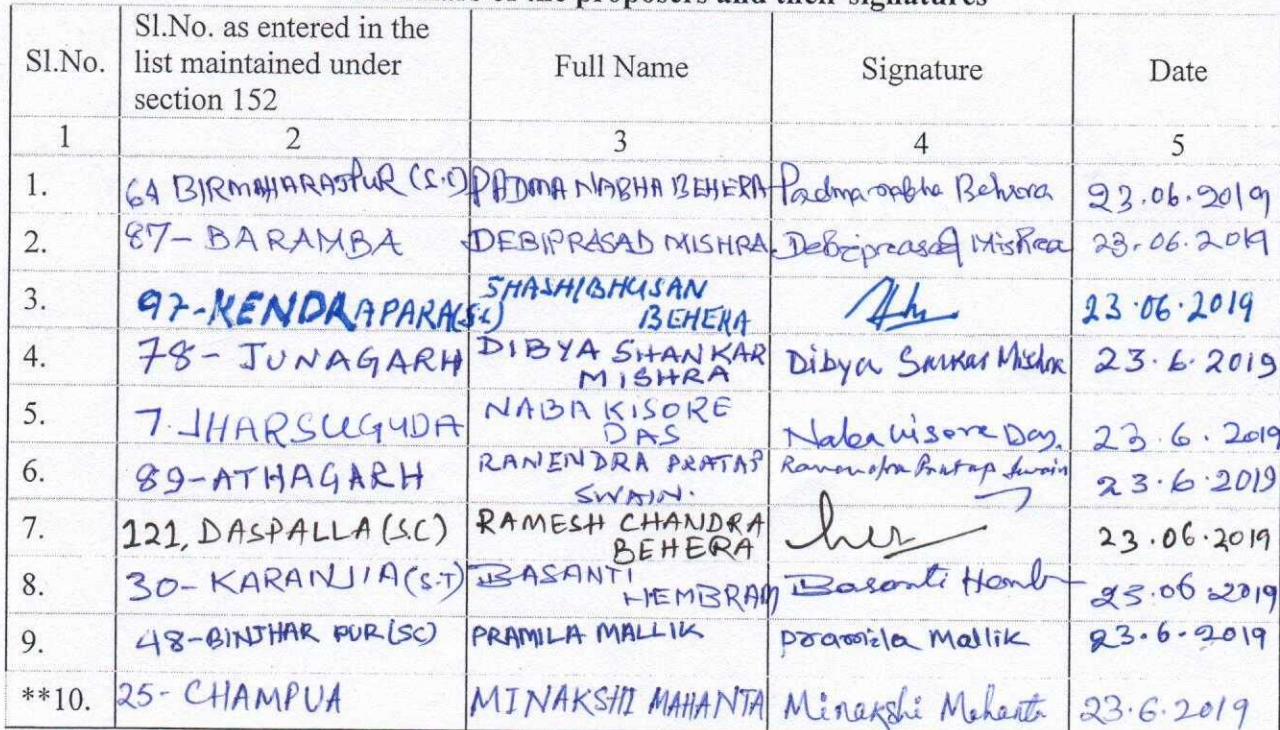 of the proposers and their signatures
Sl.No. Sl.No. as entered in the list maintained under section 152 Full Name Signature Date
1 2 3 4 5
1. 64 BIRMAHARAJPUR (S.C) PADMA NABHA BEHERA Padmanabha Behera 23.06.2019
2. 87- BARAMBA DEBIPRASAD MISHRA Debiprasad Mishra 23.06.2019
3. 97-KENDRAPARA(S.C) SHASHIBHUSAN BEHERA 23.06.2019
4. 78- JUNAGARH DIBYA SHANKAR MISHRA Dibya Sankar Mishra 23.6.2019
5. 7. JHARSUGUDA NABA KISORE DAS Naba kisore Das. 23.6.2019
6. 89-ATHAGARH RANENDRA PRATAP SWAIN. Ranendra Pratap Swain 23.6.2019
7. 121, DASPALLA (S.C) RAMESH CHANDRA BEHERA 23.06.2019
8. 30- KARANJIA (S.T) BASANTI HEMBRAM Basanti Hemb 23.06.2019
9. 48-BINJHAR PUR (SC) PRAMILA MALLIK Pramila Mallik 23.6.2019
**10. 25- CHAMPUA MINAKSHI MAHANTA Minakshi Mahanta 23.6.2019